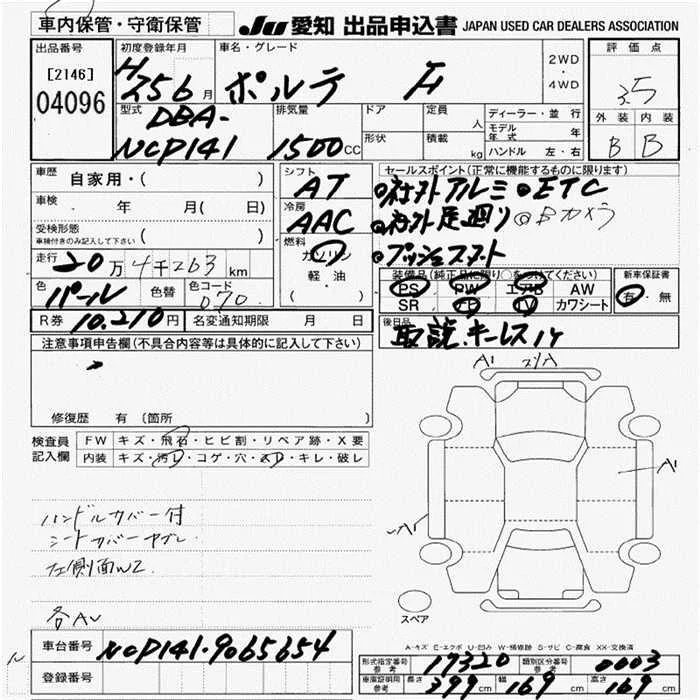 車内保管・守衛保管
JU 愛知 出品申込書 JAPAN USED CAR DEALERS ASSOCIATION
出品番号
[2146]
04096
初度登録年月
H 25 6 月
車名・グレード
ポルテ F
2WD
・
4WD
評価点
3.5
外装 内装
B B
型式
DBA-
NCP141
排気量
1500 CC
ドア
形状
定員 人
積載 kg
ディーラー・並行
モデル年式 年
ハンドル 左・右
車歴 自家用・( )
車検 年 月( 日)
受検形態
車検付きのみ記入して下さい ( )
走行 20万4千263 km
色 パール 色替 色コード 070
R券 10,210円 名変通知期限 月 日
シフト
AT
冷房
AAC
燃料
ガソリン
軽油
( )
セールスポイント(正常に機能するものに限ります)
◎社外アルミ ◎ETC
◎社外足廻り ◎Bカメラ
◎プッシュスタート
装備品(純正品に限り○をつけてください)
PS PW エアB AW
SR ナビ TV カワシート
新車保証書
有・無
後日品
取説、キーレス1ケ
注意事項申告欄(不具合内容等は具体的に記入して下さい)
修復歴 有 〔箇所
検査員
記入欄
FW キズ・飛石・ヒビ割・リペア跡・X要
内装 キズ・汚レ・コゲ・穴・スレ・キレ・破レ
ハンドルカバー付
シートカバーヤブレ
左側面W2
各AU
A1 スリA
A1
A1
スペア
A-キズ E-エクボ U-凹み W-補修跡 S-サビ C-腐食 XX-交換済
車台番号 NCP141-9065654
登録番号
形式指定番号 参考 17320 類別区分番号 参考 0003
車庫証明用 参考 長さ 399 cm 幅 169 cm 高さ 169 cm